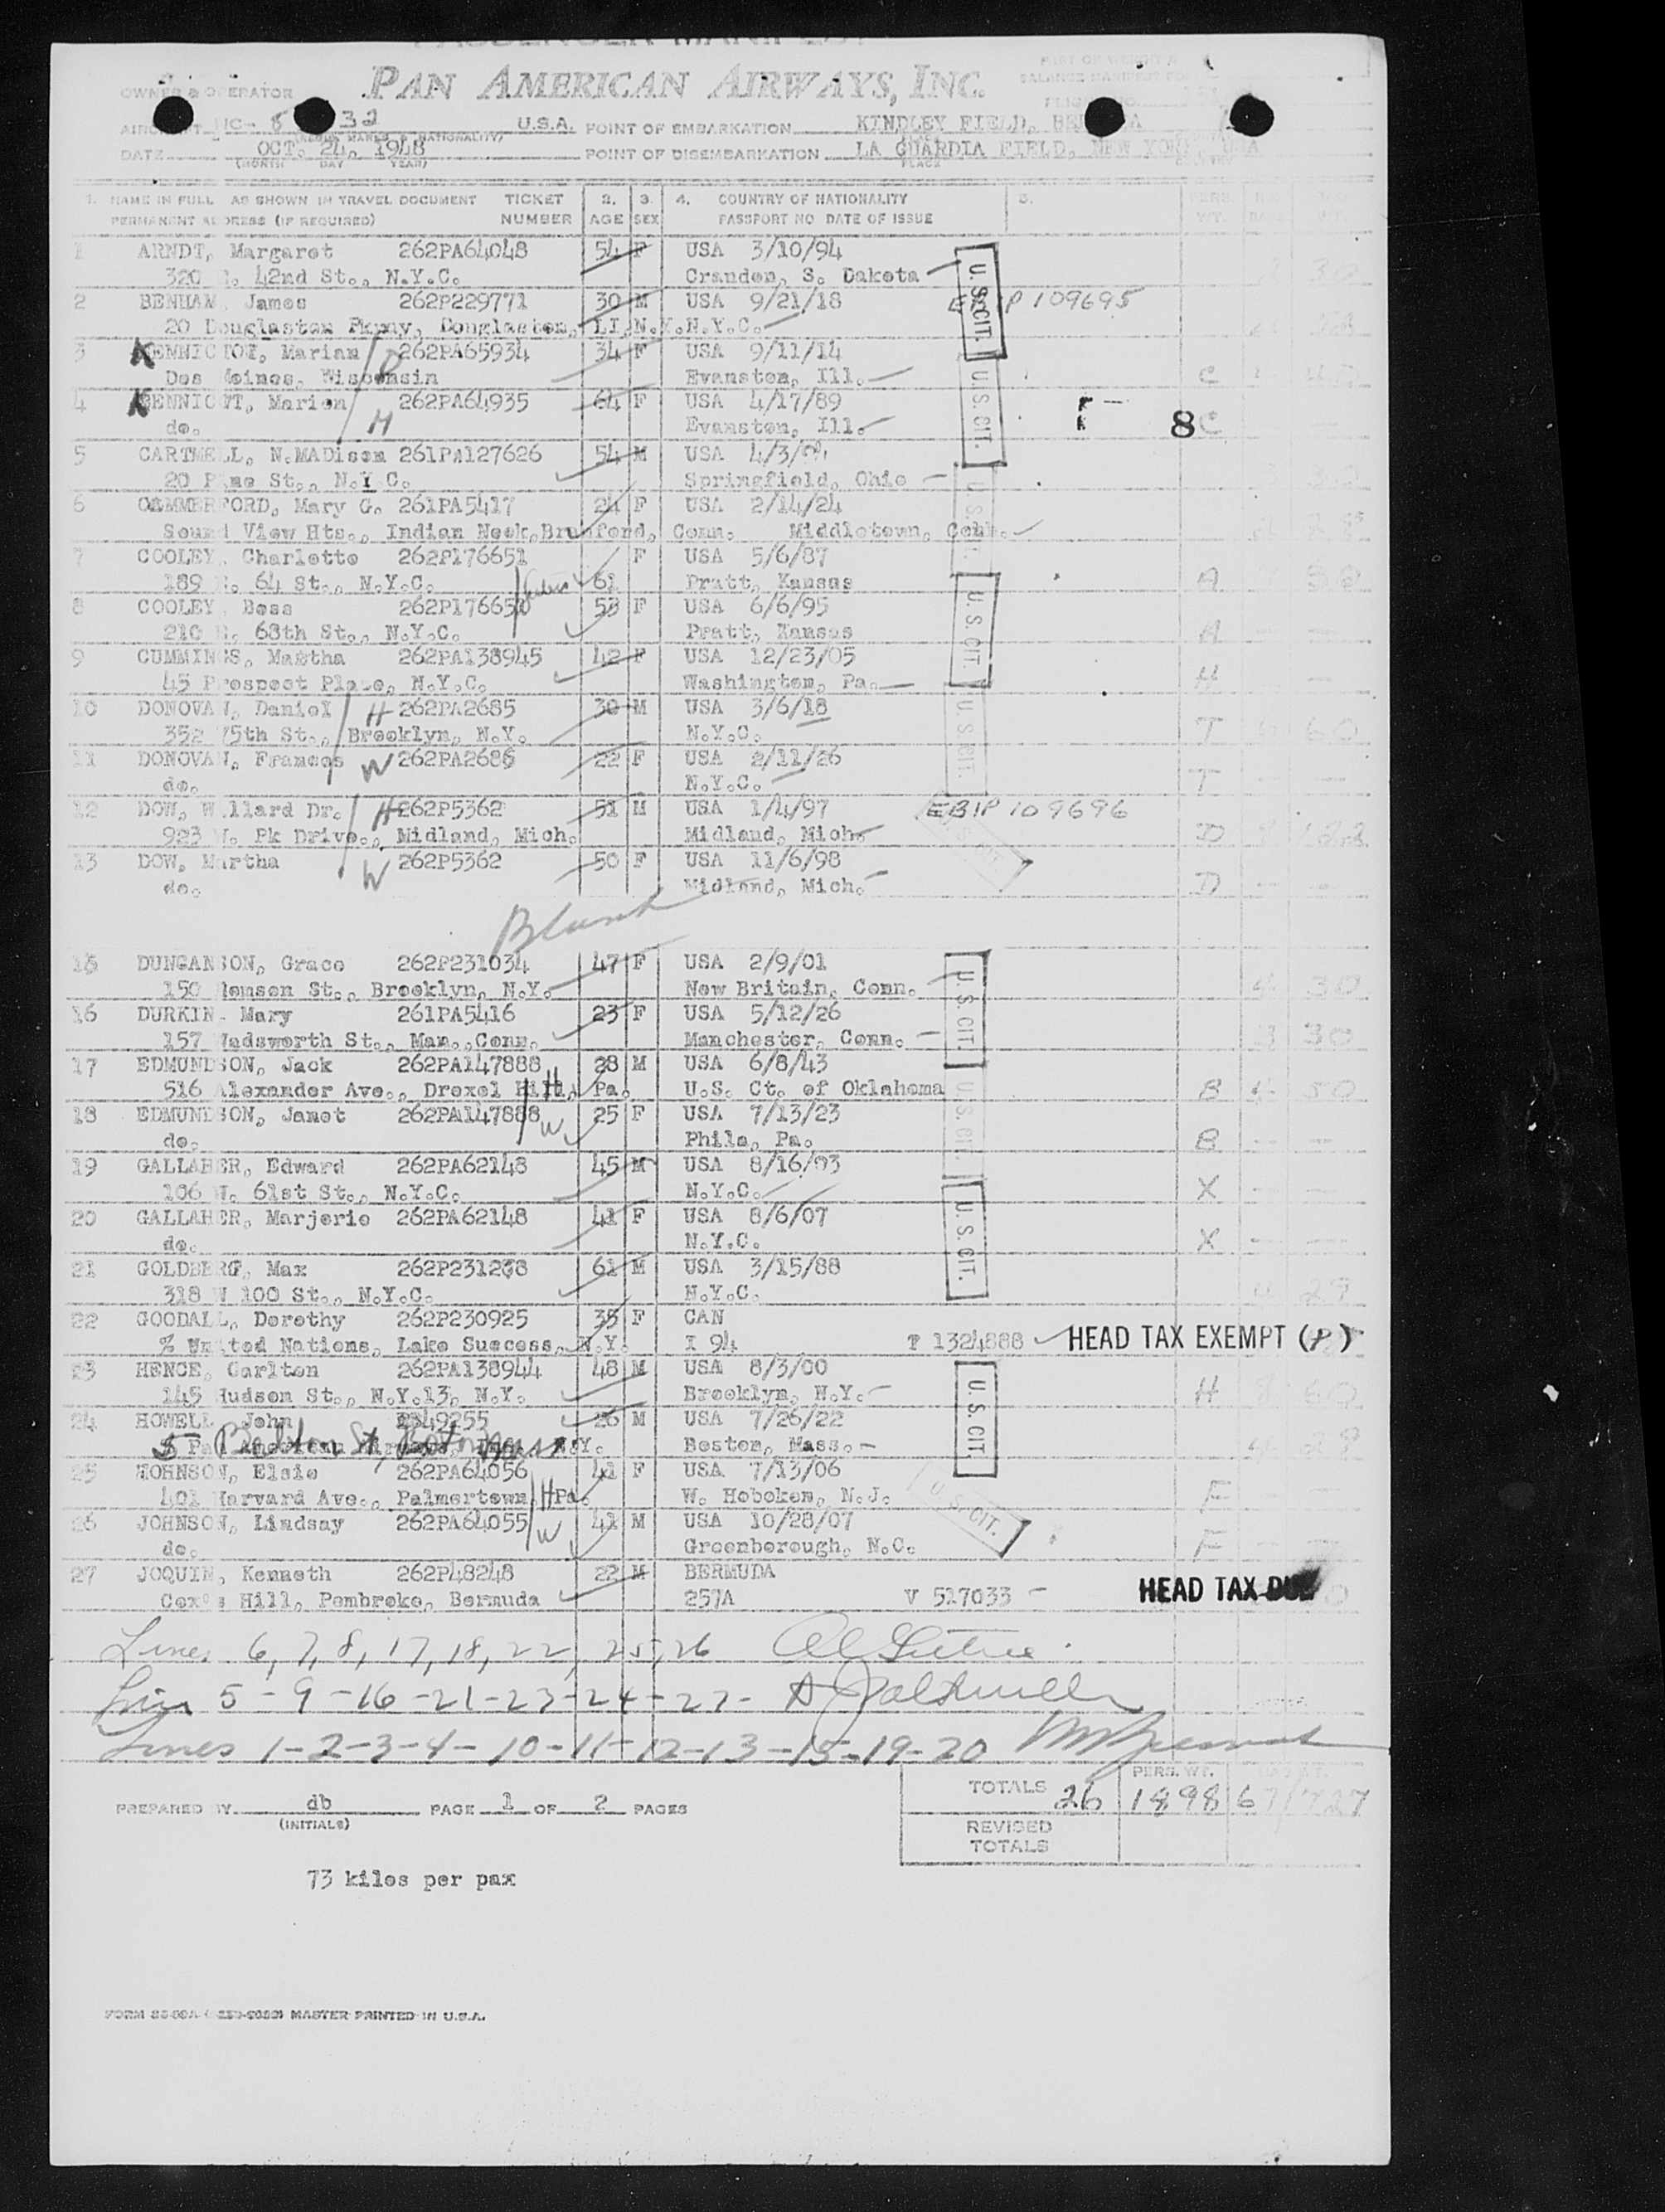 PASSENGER MANIFEST
PAN AMERICAN AIRWAYS, INC.
OWNER & OPERATOR
AIRCRAFT NC- 8 32 U.S.A. POINT OF EMBARKATION KINDLEY FIELD, BERMUDA
DATE OCT. 24, 1948 POINT OF DISEMBARKATION LA GUARDIA FIELD, NEW YORK, USA
(MONTH DAY YEAR) PLACE
1. NAME IN FULL AS SHOWN IN TRAVEL DOCUMENT TICKET 2. 3. 4. COUNTRY OF NATIONALITY 5. PERS.
PERMANENT ADDRESS (IF REQUIRED) NUMBER AGE SEX PASSPORT NO DATE OF ISSUE WT.
1 ARNDT, Margaret 262PA64048 54 F USA 3/10/94
320 E. 42nd St., N.Y.C. Crandon, S. Dakota
2 BENHAM, James 262P229771 30 M USA 9/21/18 109695
20 Douglaston Pkway, Douglaston, LI, N.Y. N.Y.C.
3 KENNICTOT, Marian D 262PA65934 34 F USA 9/11/14
Des Moines, Wisconsin Evanston, Ill. C
4 KENNICOTT, Marion 262PA64935 64 F USA 4/17/89
do. H Evanston, Ill. 8 C
5 CARTMELL, N.MADison 261PA127626 54 M USA
20 Pine St., N.Y.C. Springfield, Ohio
6 CAMMERFORD, Mary G. 261PA5417 24 F USA 2/14/24
Sound View Hts., Indian Neck, Branford, Conn. Middletown, Conn.
7 COOLEY, Charlotte 262P176651 F USA 5/6/87
189 E. 64 St., N.Y.C. 61 Pratt, Kansas A
8 COOLEY, Bess 262P176650 53 F USA 6/6/95
210 E. 68th St., N.Y.C. Pratt, Kansas A
9 CUMMINGS, Martha 262PA138945 42 F USA 12/23/05
45 Prospect Place, N.Y.C. Washington, Pa. H
10 DONOVAN, Daniel H 262PA2685 30 M USA 3/6/18
352 75th St., Brooklyn, N.Y. N.Y.C. T 60
11 DONOVAN, Frances W 262PA2686 22 F USA 2/11/26
do. N.Y.C. T
12 DOW, Willard Dr. H 262P5362 51 M USA 1/4/97 EBIP 109696
923 W. Pk Drive., Midland, Mich. Midland, Mich. D
13 DOW, Martha W 262P5362 50 F USA 11/6/98
do. Midland, Mich. D
Blank
15 DUNGANSON, Grace 262P231034 47 F USA 2/9/01
150 Remsen St., Brooklyn, N.Y. New Britain, Conn. 30
16 DURKIN, Mary 261PA5416 23 F USA 5/12/26
157 Wadsworth St., Man., Conn. Manchester, Conn. 30
17 EDMUNDSON, Jack 262PA147888 28 M USA 6/8/43
516 Alexander Ave., Drexel Hill, Pa. H U.S. Ct. of Oklahoma B 50
18 EDMUNDSON, Janet 262PA147888 W 25 F USA 7/13/23
do. Phila, Pa. B
19 GALLAHER, Edward 262PA62148 45 M USA 8/16/03
106 W. 61st St., N.Y.C. N.Y.C. X
20 GALLAHER, Marjorie 262PA62148 41 F USA 8/6/07
do. N.Y.C. X
21 GOLDBERG, Max 262P231238 61 M USA 3/15/88
318 W 100 St., N.Y.C. N.Y.C.
22 GOODALL, Dorothy 262P230925 35 F CAN
% United Nations, Lake Success, N.Y. I 94 T 1324888 HEAD TAX EXEMPT (P)
23 HENCE, Carlton 262PA138944 48 M USA 8/3/00
145 Hudson St., N.Y.13, N.Y. Brooklyn, N.Y. H
24 HOWELL John 49255 26 M USA 7/26/22
Boston, Mass.
25 JOHNSON, Elsie 262PA64056 41 F USA 7/13/06
401 Harvard Ave., Palmertown, Pa. H W. Hoboken, N.J. F
26 JOHNSON, Lindsay 262PA64055 W 41 M USA 10/28/07
do. Greenborough, N.C. F
27 JOQUIN, Kenneth 262P48248 22 M BERMUDA
Cox's Hill, Pembroke, Bermuda 257A V 517033 HEAD TAX DUE
U.S. CIT.
U.S. CIT.
U.S. CIT.
U.S. CIT.
U.S. CIT.
U.S. CIT.
U.S. CIT.
U.S. CIT.
U.S. CIT.
U.S. CIT.
Lines 6, 7, 8, 17, 18, 22, 25, 26
Lines 5-9-16-21-23-24-27-
Lines 1-2-3-4-10-11-12-13-15-19-20
PREPARED BY db PAGE 1 OF 2 PAGES
(INITIALS)
TOTALS 26 PERS. WT. 1898
REVISED TOTALS
73 kilos per pax
MASTER PRINTED IN U.S.A.